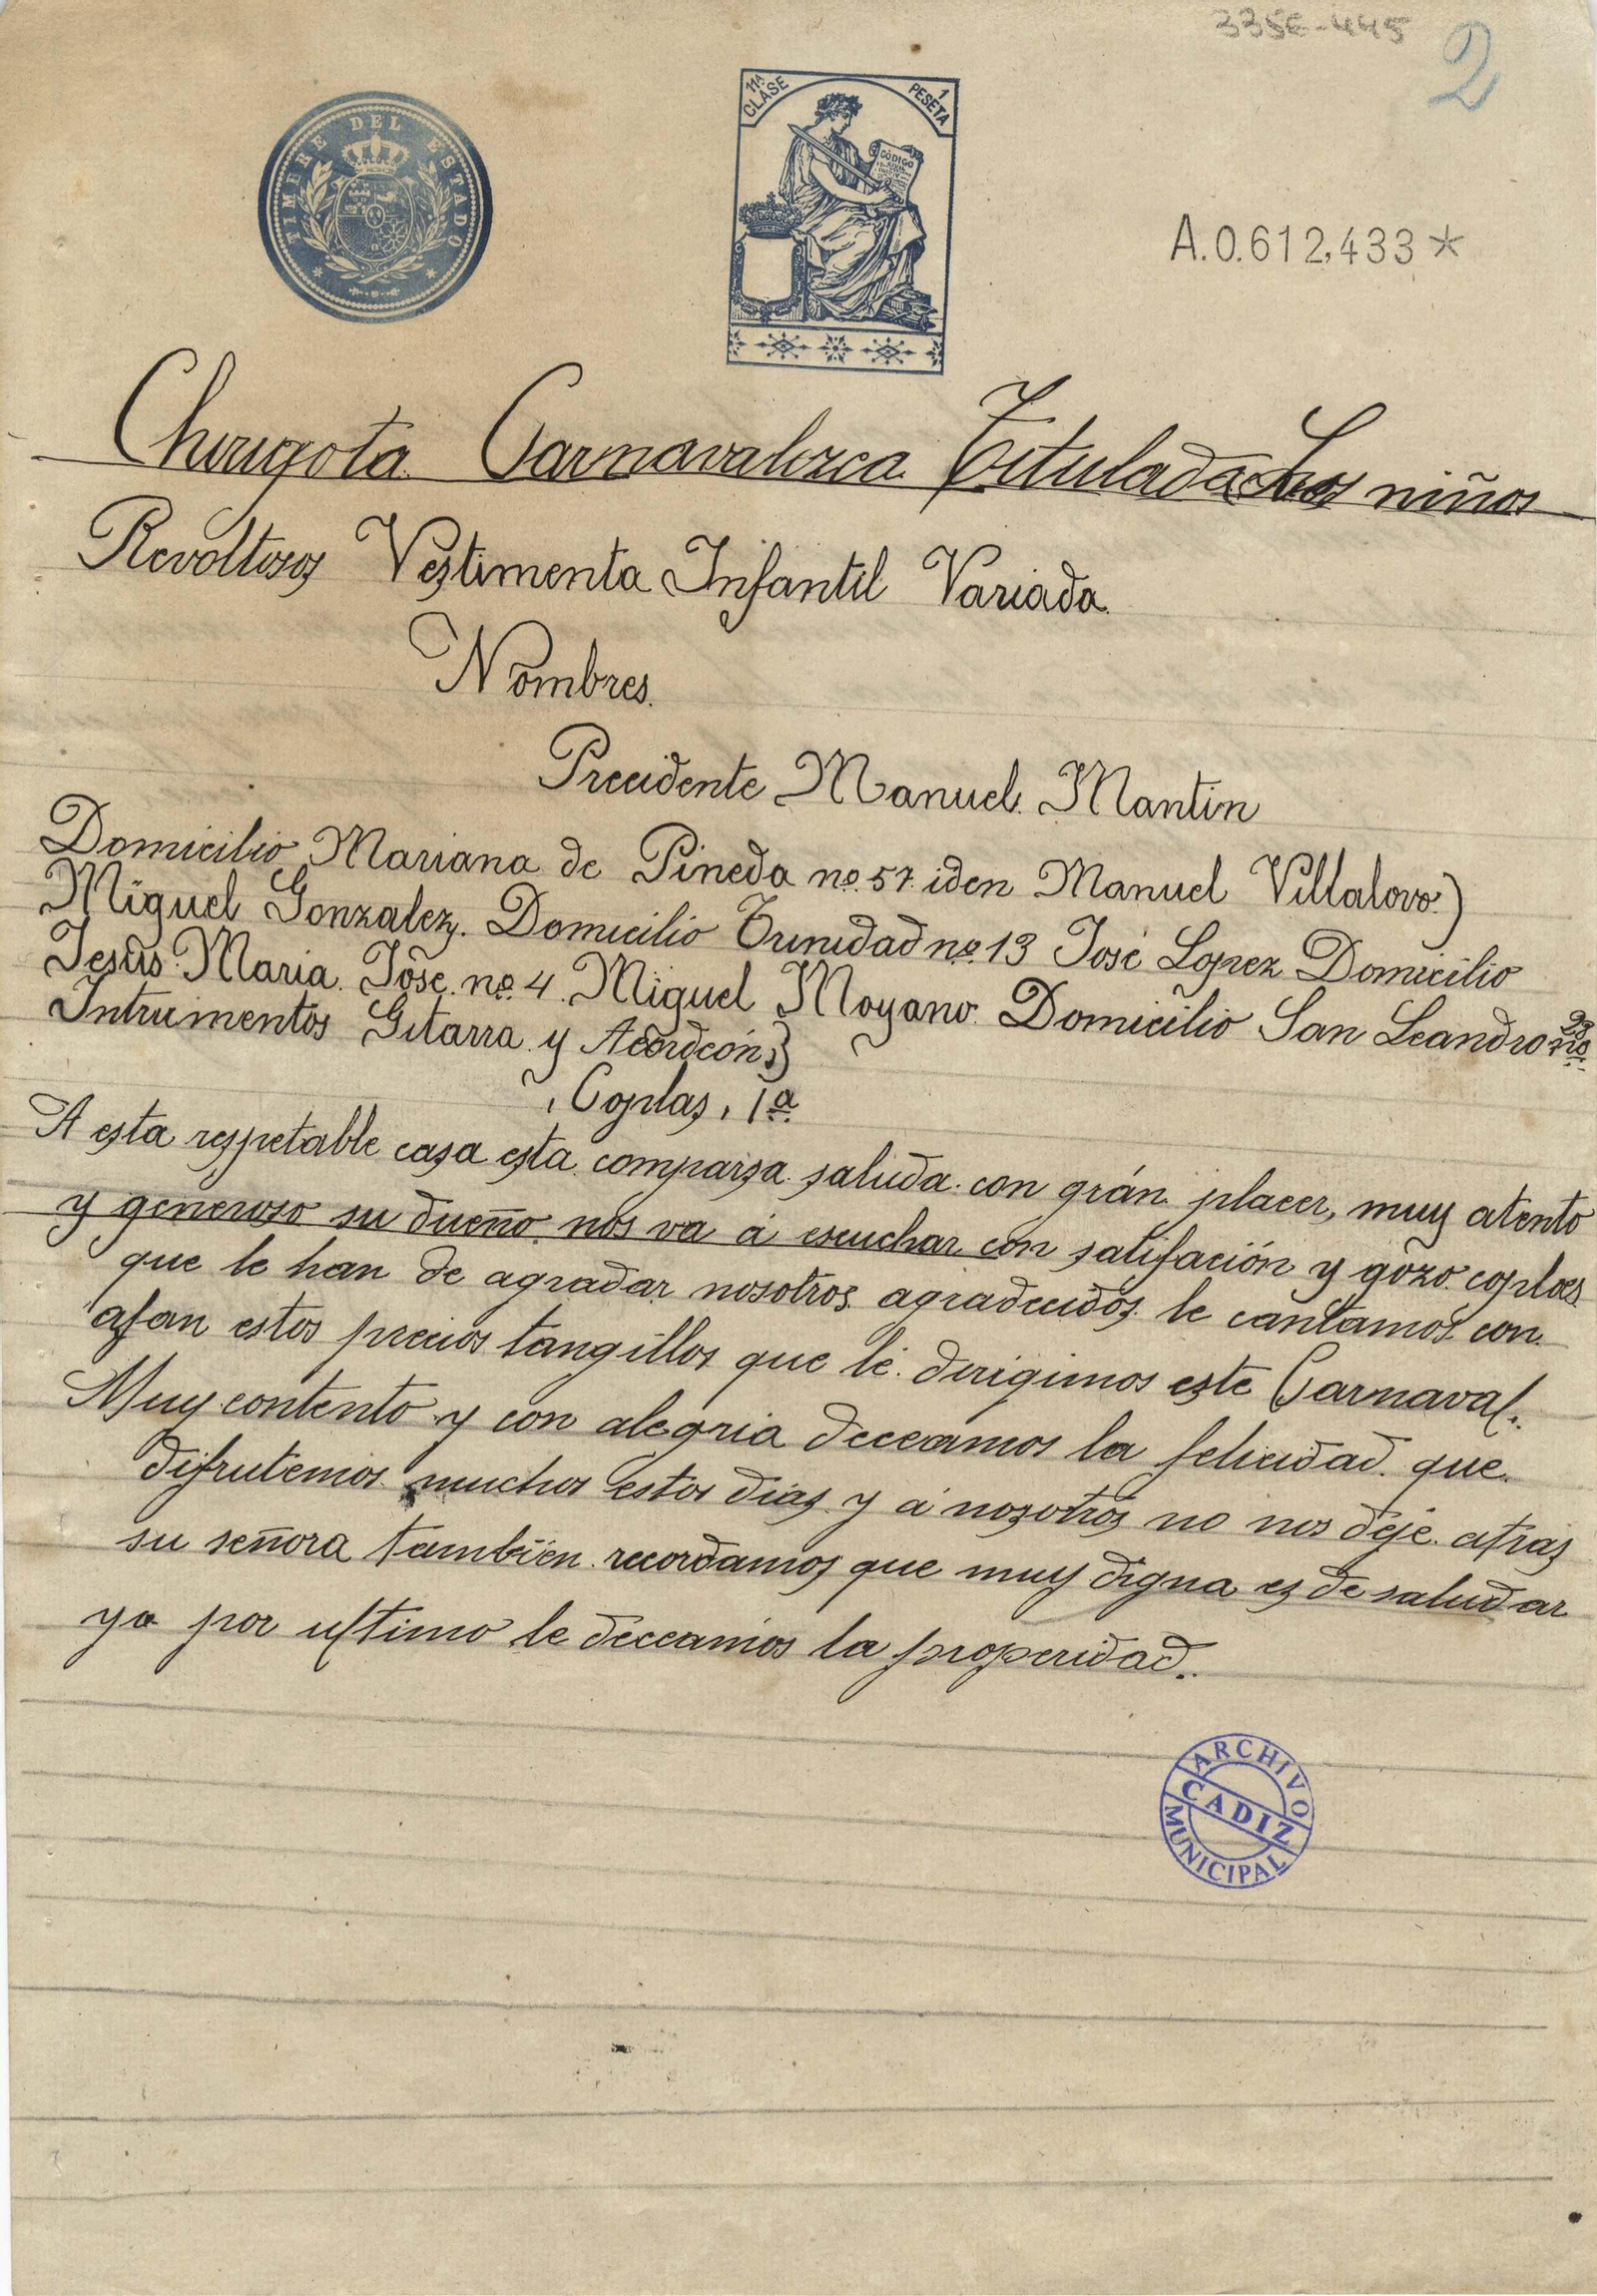 335E-445
2
TIMBRE DEL ESTADO
11A CLASE
1 PESETA
CÓDIGO
A.0.612,433*
Chirigota Carnavalezca Titulada Los niños
Revoltosos Vestimenta Infantil Variada.
Nombres.
Precidente Manuel Mantin
Domicilio Mariana de Pineda nº 57 iden Manuel Villalovo)
Miguel Gonzalez. Domicilio Trinidad nº 13 José Lopez Domicilio
Jesús Maria José. nº 4. Miguel Moyano Domicilio San Leandro nº
Intrumentos Gitarra y Acordeón,}
, Coplas, 1ª
A esta respetable casa esta comparsa saluda con grán placer, muy atento
y generoso su dueño nos va á escuchar con satifación y gozo coplas
que le han de agradar nosotros agradecidos le cantamos con
afan estos precios tangillos que le dirigimos este Carnaval.
Muy contento y con alegria deceamos la felicidad que
difrutemos muchos estos dias y á nosotros no nos deje atras
su señora tambien recordamos que muy digna es de saludar
ya por ultimo le deceamos la properidad.
ARCHIVO
CADIZ
MUNICIPAL